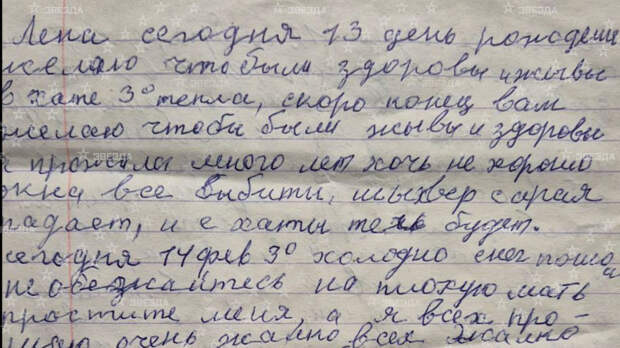 Лена сегодня 13 день рождения
желаю чтобы были здоровы и живы
в хате 3° тепла, скоро конец вам
желаю чтобы были жывы и здоровы
я прожила много лет хочь не хорошо
окна все выбити, шыхвер сарая
падает, и с хаты тежь будет.
сегодня 14 фев 3° холодно снег пошол
не обежайтесь на плохую мать
простите меня, а я всех про-
очень жално всех жално
ЗВЕЗДА